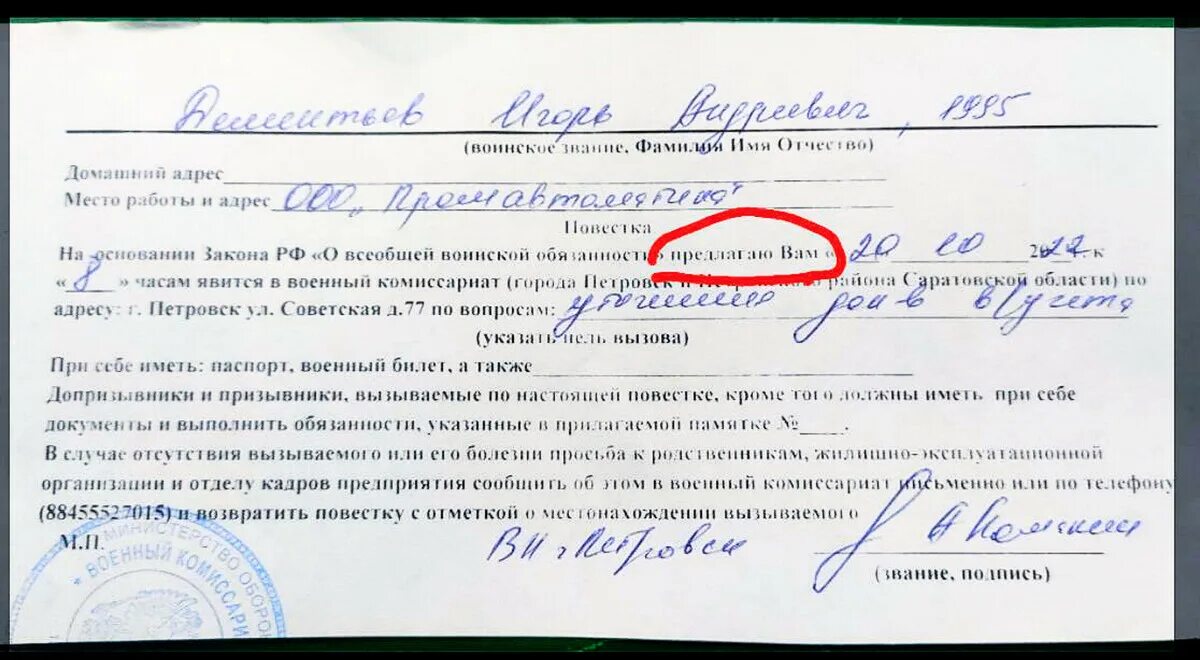 Дементьев Игорь Андреевич, 1995
(воинское звание, Фамилия Имя Отчество)
Домашний адрес
Место работы и адрес ООО "Промавтоматика"
Повестка
На основании Закона РФ «О всеобщей воинской обязанности» предлагаю Вам « 20 10 2022 к
« 8 » часам явится в военный комиссариат (города Петровск и Петровского района Саратовской области) по
адресу: г. Петровск ул. Советская д.77 по вопросам: уточнения док в в/учета
(указать цель вызова)
При себе иметь: паспорт, военный билет, а также
Допризывники и призывники, вызываемые по настоящей повестке, кроме того должны иметь при себе
документы и выполнить обязанности, указанные в прилагаемой памятке №____.
В случае отсутствия вызываемого или его болезни просьба к родственникам, жилищно-эксплуатационной
организации и отделу кадров предприятия сообщить об этом в военный комиссариат письменно или по телефону
(88455527015) и возвратить повестку с отметкой о местонахождении вызываемого
М.П.
г Петровск
(звание, подпись)
МИНИСТЕРСТВО ОБОРОН
* ВОЕННЫЙ КОМИССАРИ